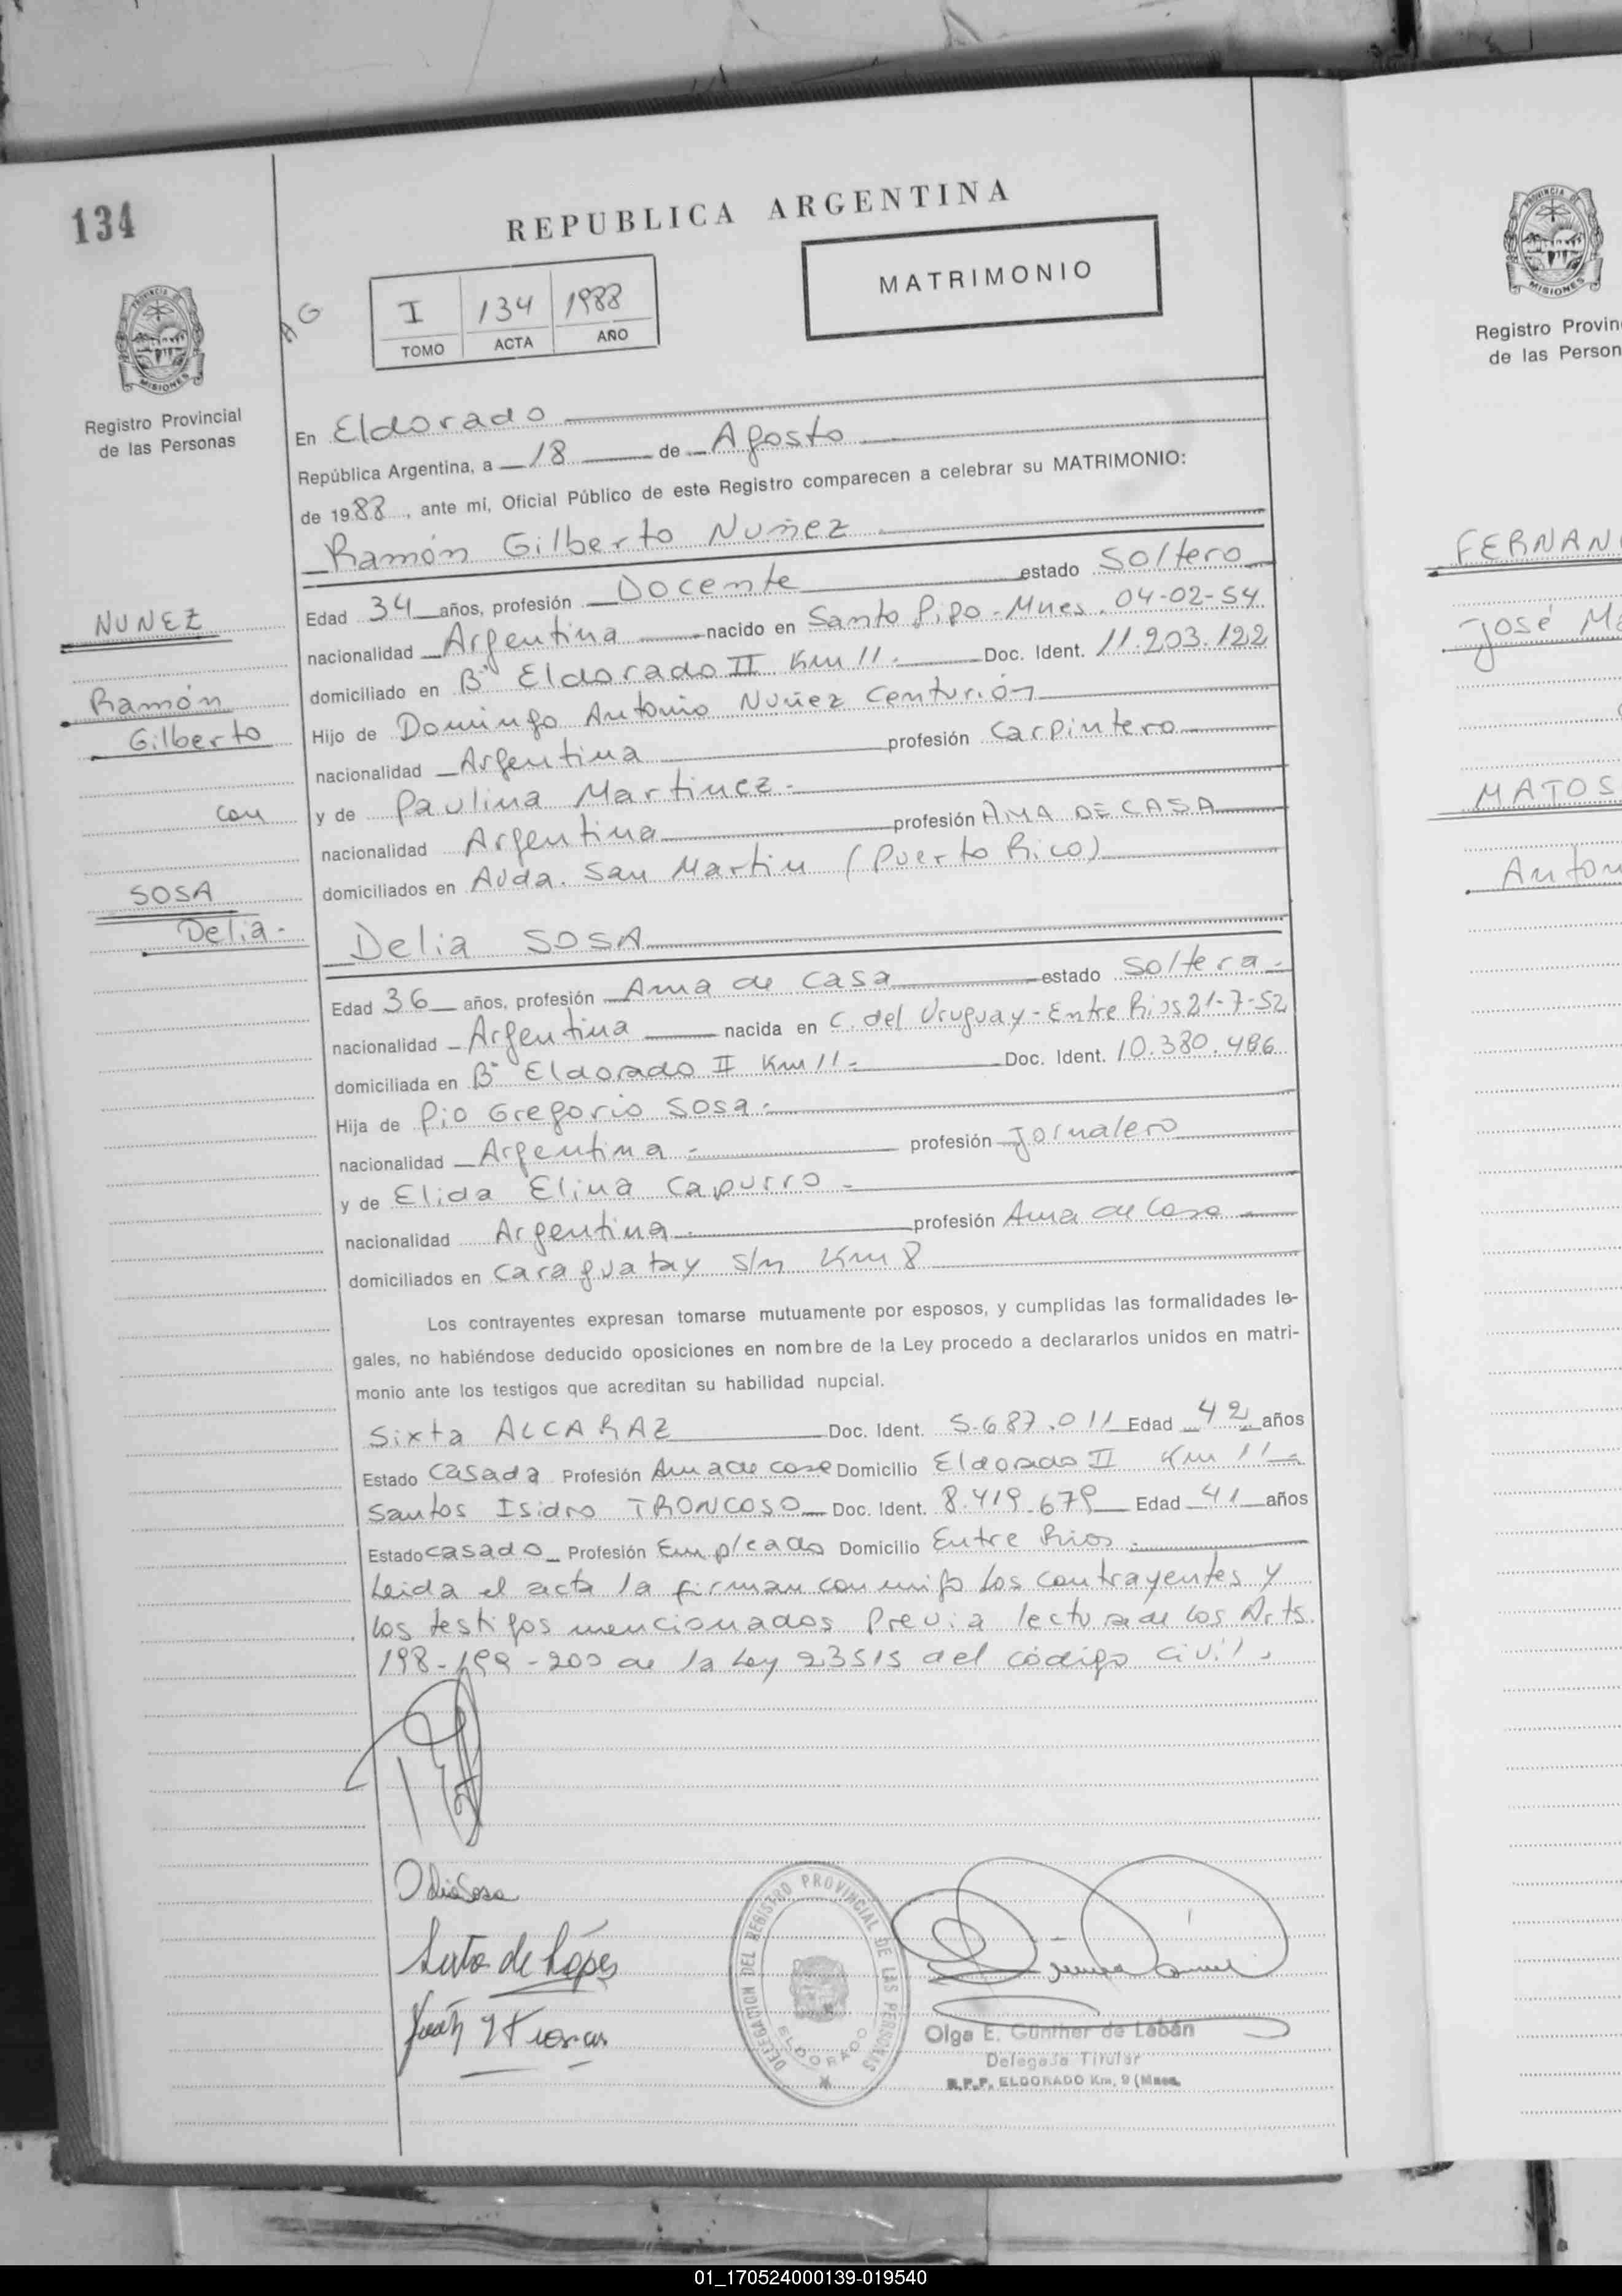 134
REPUBLICA ARGENTINA
MATRIMONIO
I 134 1988
TOMO ACTA AÑO
PROVINCIA DE
MISIONES
Registro Provincial
de las Personas
En Eldorado
República Argentina, a 18 de Agosto
de 1988, ante mi, Oficial Público de este Registro comparecen a celebrar su MATRIMONIO:
Ramón Gilberto Nuñez
Edad 34 años, profesión Docente estado Soltero
nacionalidad Argentina nacido en Santo Pipo - Mnes. 04-02-54
domiciliado en B° Eldorado II Km 11.- Doc. Ident. 11.203.122
Hijo de Domingo Antonio Nuñez Centurión
nacionalidad Argentina profesión Carpintero
y de Paulina Martinez.-
nacionalidad Argentina profesión AMA DE CASA
domiciliados en Avda. San Martin (Puerto Rico)
NUNEZ
Ramón
Gilberto
con
SOSA
Delia.-
Delia SOSA
Edad 36 años, profesión Ama de casa estado Soltera.-
nacionalidad Argentina nacida en C. del Uruguay - Entre Rios 21-7-52
domiciliada en B° Eldorado II Km 11.- Doc. Ident. 10.380.486
Hija de Pio Gregorio Sosa.-
nacionalidad Argentina.- profesión Jornalero
y de Elida Elina Capurro.-
nacionalidad Argentina.- profesión Ama de Casa
domiciliados en Caraguatay s/n Km 8
Los contrayentes expresan tomarse mutuamente por esposos, y cumplidas las formalidades le-
gales, no habiéndose deducido oposiciones en nombre de la Ley procedo a declararlos unidos en matri-
monio ante los testigos que acreditan su habilidad nupcial.
Sixta ALCARAZ Doc. Ident. 5.687.011 Edad 42 años
Estado Casada Profesión Ama de casa Domicilio Eldorado II Km 11
Santos Isidro TRONCOSO Doc. Ident. 8.419.679 Edad 41 años
Estado casado Profesión Empleado Domicilio Entre Rios.-
Leida el acta la firman conmigo los contrayentes y
los testigos mencionados previa lectura de los Arts.
198-199-200 de la Ley 23515 del código civil.
DELEGACION DEL REGISTRO PROVINCIAL DE LAS PERSONAS
ELDORADO
Olga E. Günther de Labán
Delegada Titular
R.P.P. ELDORADO Km. 9 (Mnes.
PROVINCIA DE
MISIONES
Registro Provin
de las Person
FERNAN
José Ma
MATOS
Anton
01_170524000139-019540